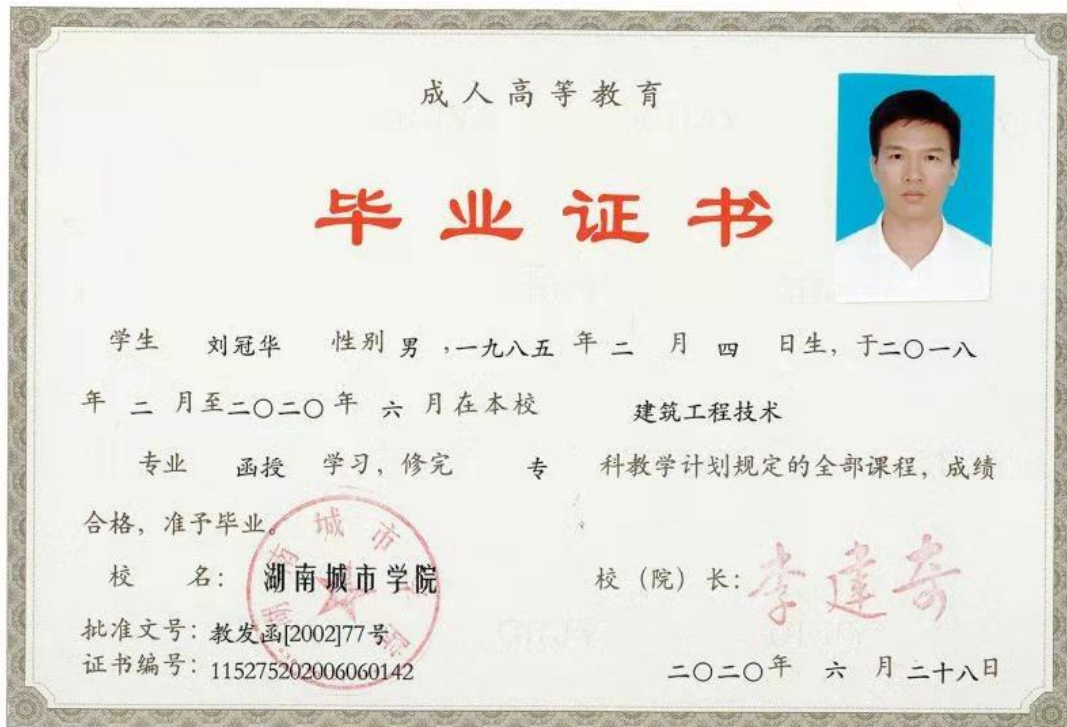 成人高等教育
毕业证书
学生 刘冠华 性别 男 ,一九八五 年 二 月 四 日生，于二〇一八
年 二 月至二〇二〇年 六 月在本校 建筑工程技术
专业 函授 学习，修完 专 科教学计划规定的全部课程，成绩
合格，准予毕业。
校 名： 湖南城市学院 校（院）长：李建奇
湖南城市学院
批准文号：教发函[2002]77号
证书编号：115275202006060142
二〇二〇年 六 月 二十八日